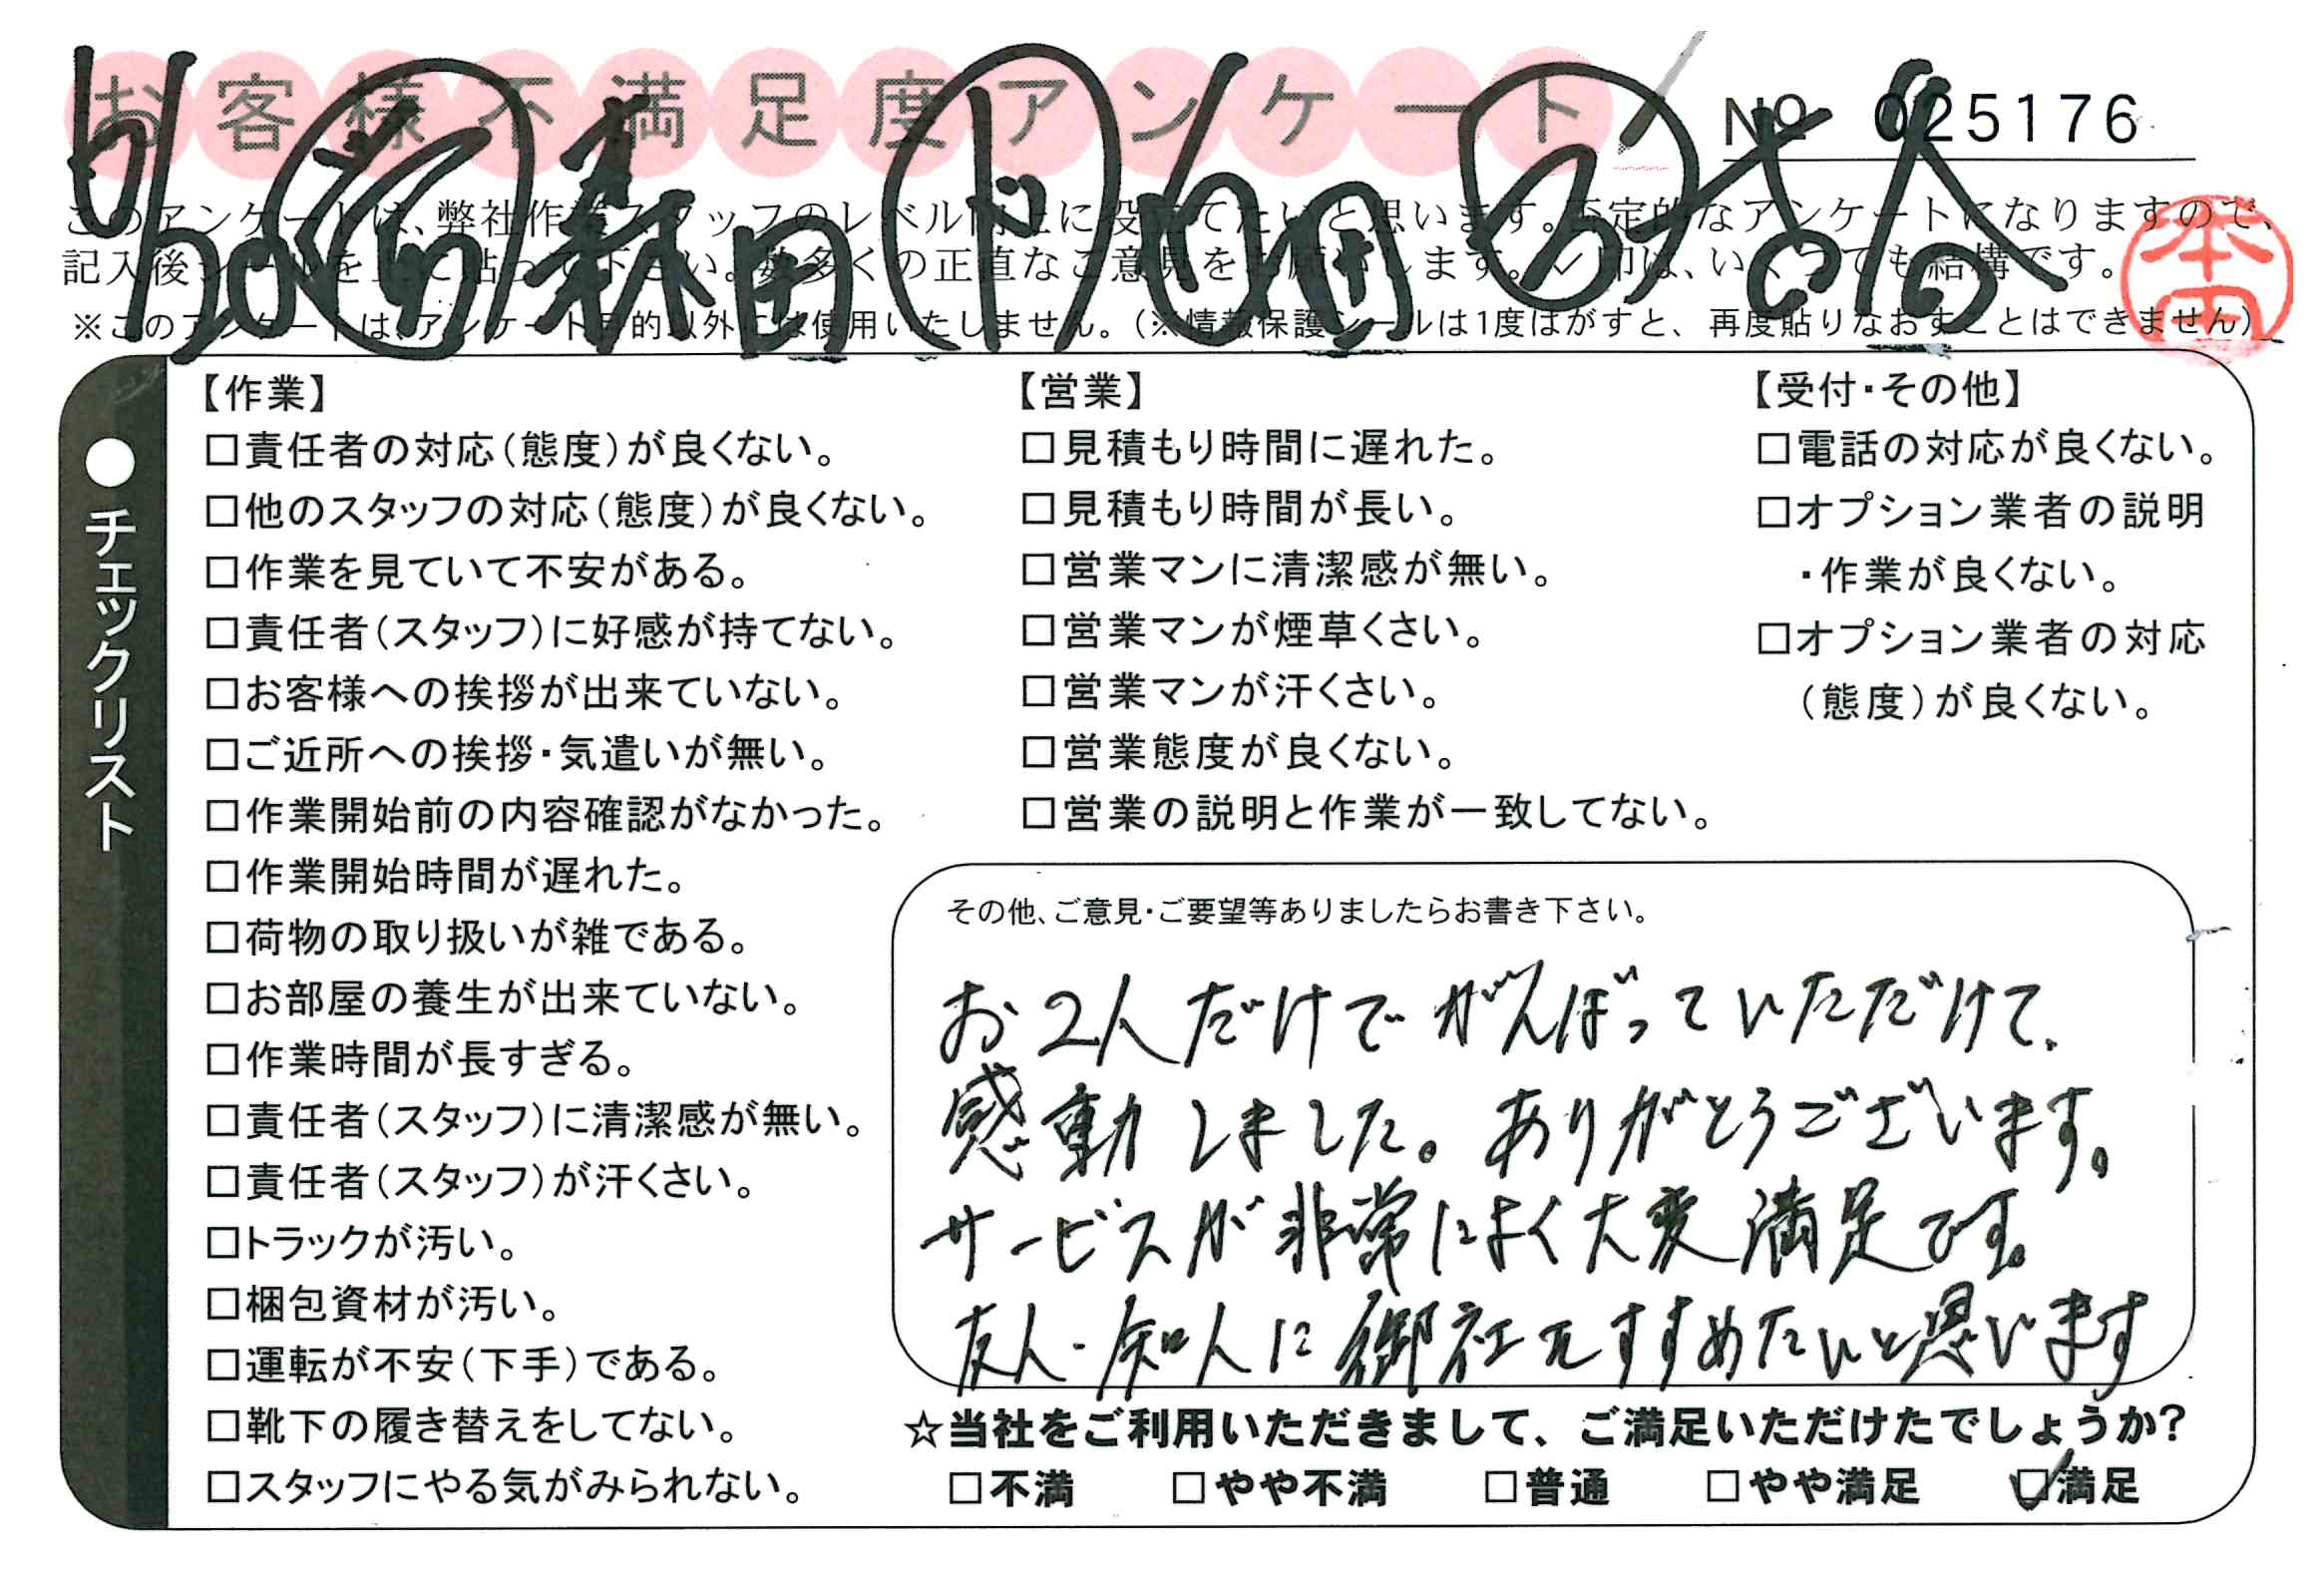 お客様不満足度アンケート
No 025176
このアンケートは、弊社作業スタッフのレベル向上に役立てたいと思います。否定的なアンケートになりますので、
記入後シールを上に貼って下さい。数多くの正直なご意見をお願いします。✓印は、いくつでも結構です。
※このアンケートは、アンケート目的以外には使用いたしません。(※情報保護シールは1度はがすと、再度貼りなおすことはできません)
本田
●チェックリスト
【作業】
□責任者の対応(態度)が良くない。
□他のスタッフの対応(態度)が良くない。
□作業を見ていて不安がある。
□責任者(スタッフ)に好感が持てない。
□お客様への挨拶が出来ていない。
□ご近所への挨拶・気遣いが無い。
□作業開始前の内容確認がなかった。
□作業開始時間が遅れた。
□荷物の取り扱いが雑である。
□お部屋の養生が出来ていない。
□作業時間が長すぎる。
□責任者(スタッフ)に清潔感が無い。
□責任者(スタッフ)が汗くさい。
□トラックが汚い。
□梱包資材が汚い。
□運転が不安(下手)である。
□靴下の履き替えをしてない。
□スタッフにやる気がみられない。
【営業】
□見積もり時間に遅れた。
□見積もり時間が長い。
□営業マンに清潔感が無い。
□営業マンが煙草くさい。
□営業マンが汗くさい。
□営業態度が良くない。
□営業の説明と作業が一致してない。
【受付・その他】
□電話の対応が良くない。
□オプション業者の説明
・作業が良くない。
□オプション業者の対応
(態度)が良くない。
その他、ご意見・ご要望等ありましたらお書き下さい。
お2人だけでがんばっていただけて、
感動しました。ありがとうございます。
サービスが非常によく大変満足です。
友人・知人に御社をすすめたいと思います
☆当社をご利用いただきまして、ご満足いただけたでしょうか?
□不満 □やや不満 □普通 □やや満足 ☑満足